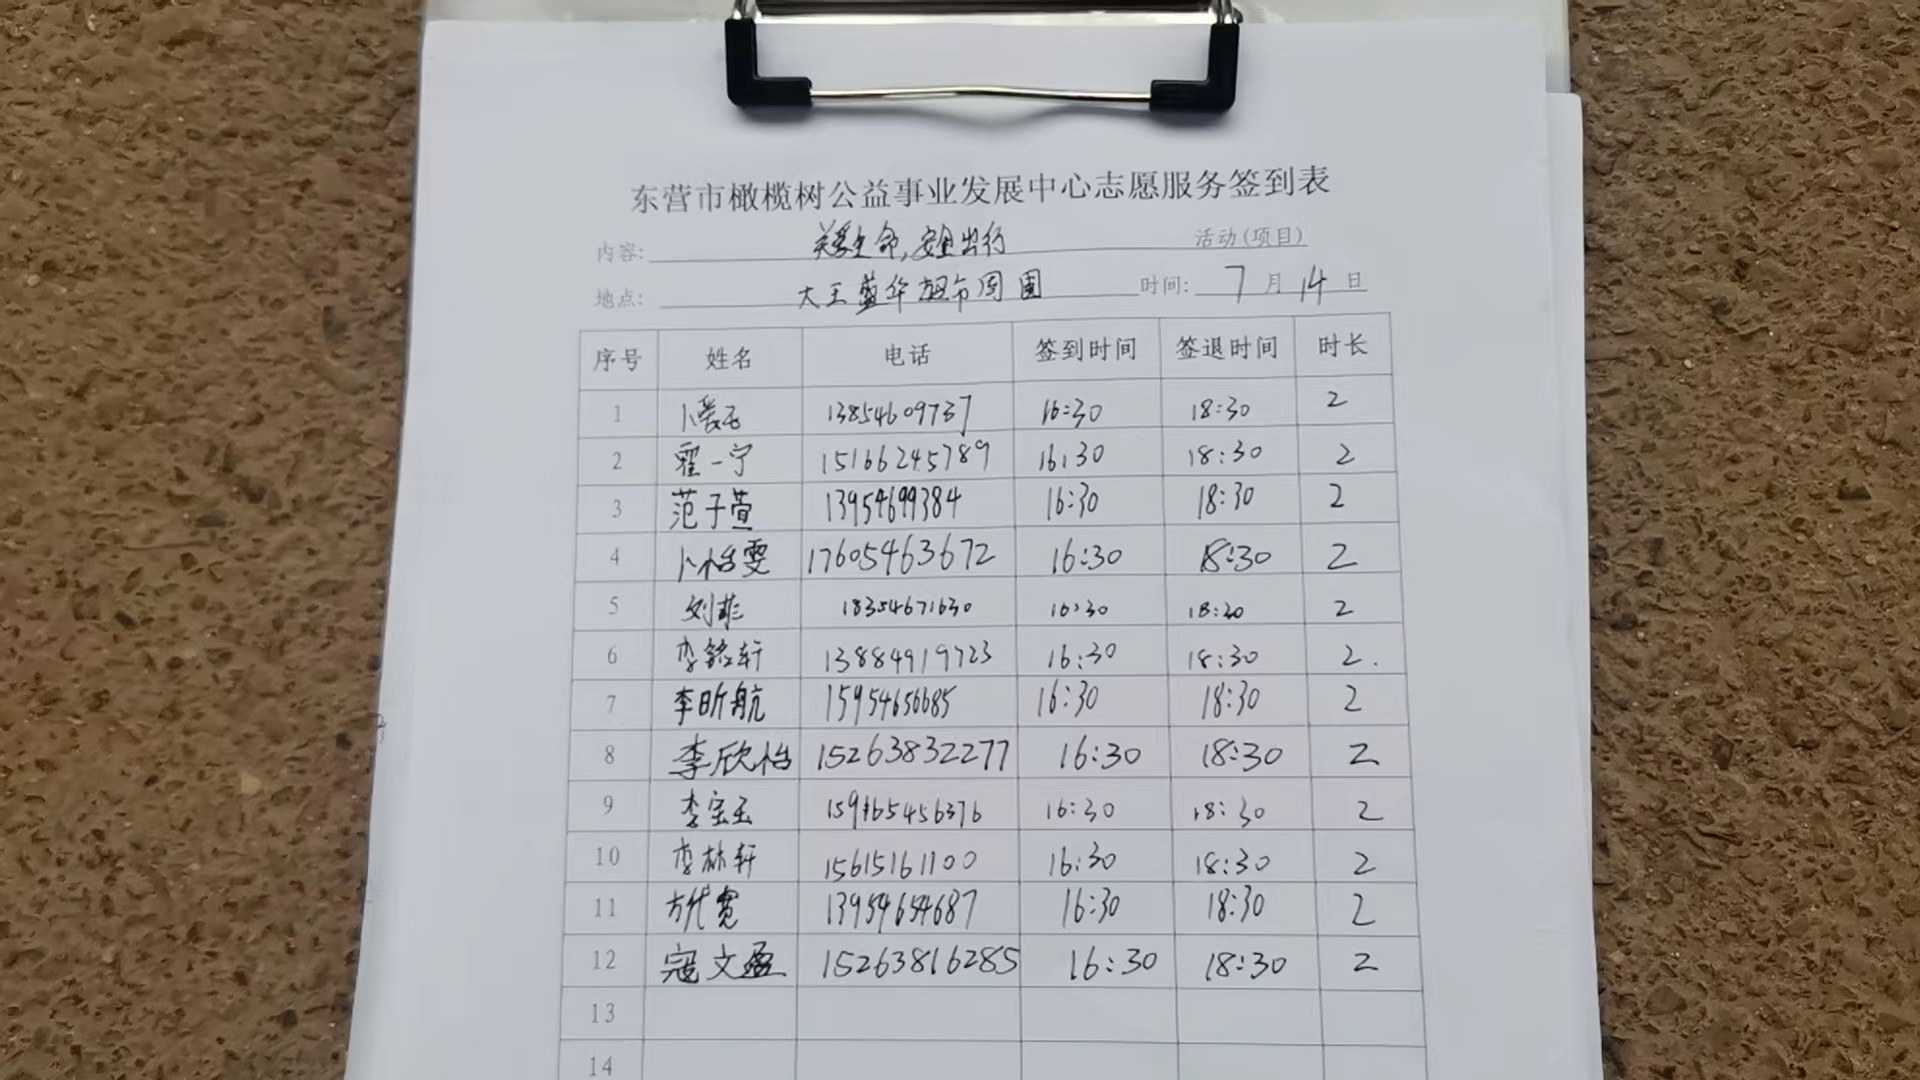 东营市橄榄树公益事业发展中心志愿服务签到表
内容: 关爱生命,安全出行 活动(项目)
地点: 大王蓝华超市周围 时间: 7月14日
序号 姓名 电话 签到时间 签退时间 时长
1 卜爱玉 13854609737 16:30 18:30 2
2 霍一宁 15166245789 16:30 18:30 2
3 范子萱 13954699384 16:30 18:30 2
4 卜怡雯 17605463672 16:30 18:30 2
5 刘菲 18354671630 16:30 18:30 2
6 李铭轩 13884919723 16:30 18:30 2.
7 李昕航 15954656685 16:30 18:30 2
8 李欣怡 15263832277 16:30 18:30 2
9 李宝玉 16:30 18:30 2
10 李林轩 15615161100 16:30 18:30 2
11 方代宽 13954654687 16:30 18:30 2
12 寇文盈 15263816285 16:30 18:30 2
13
14